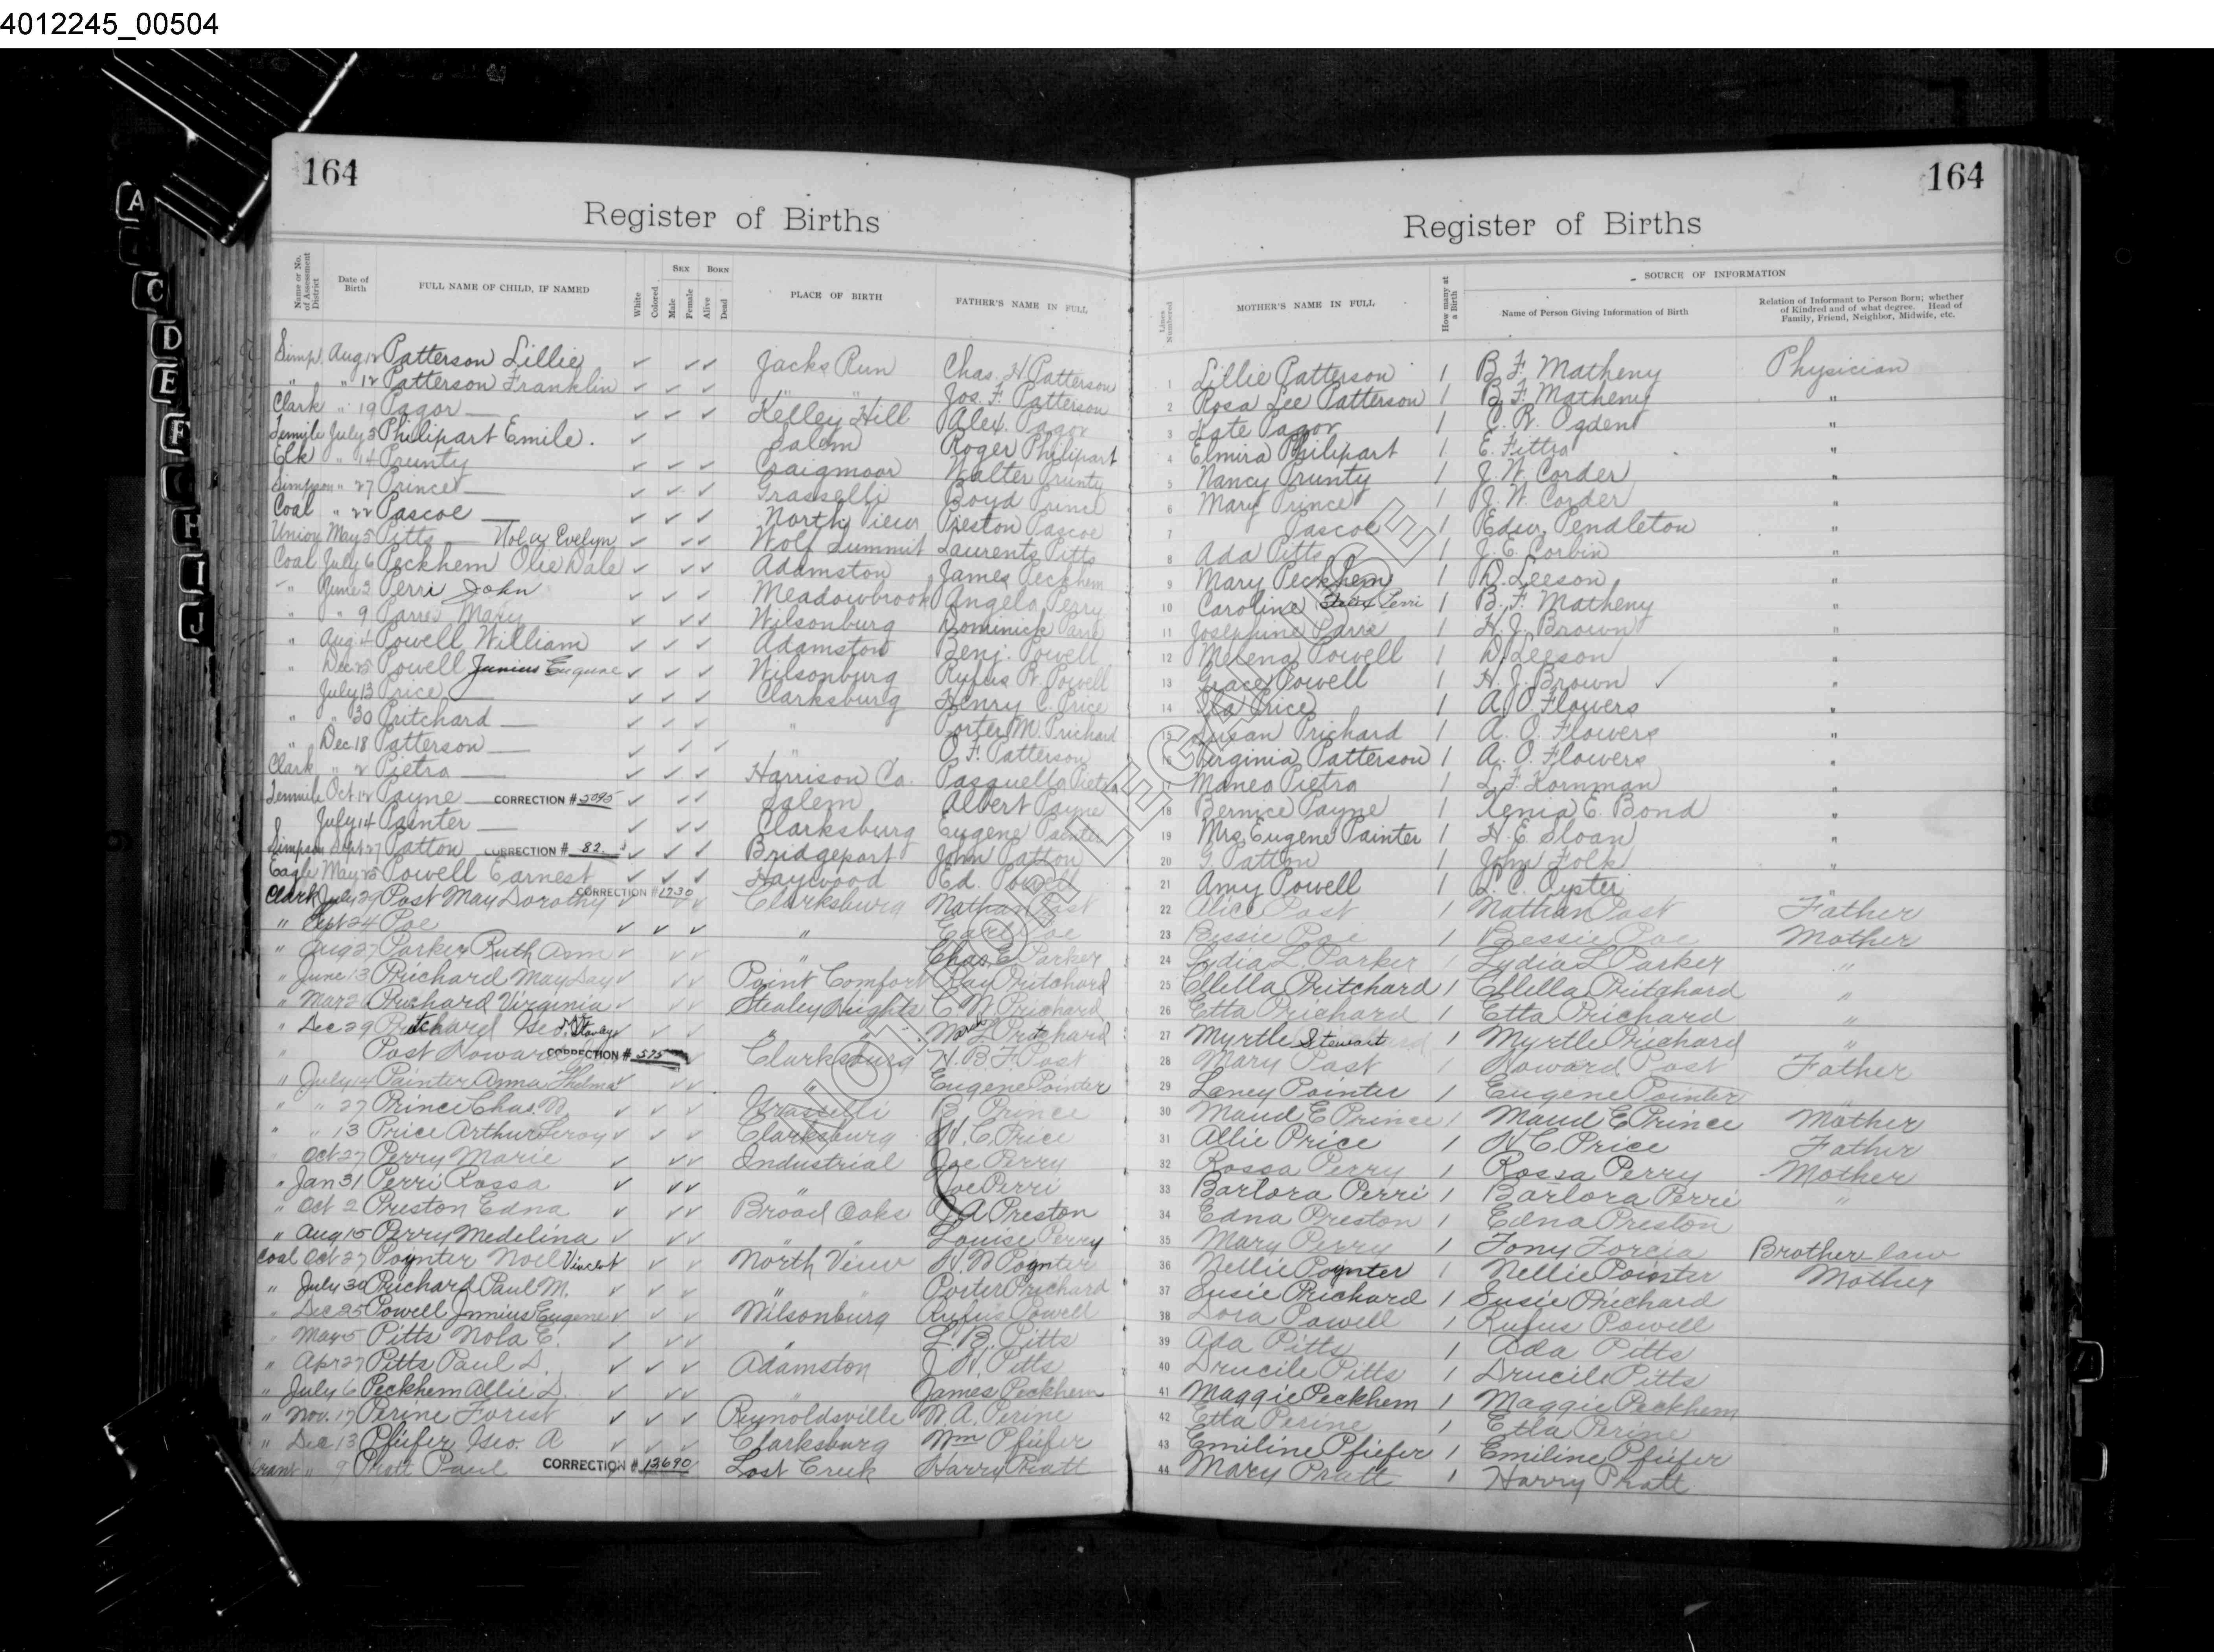 4012245_00504
164
Register of Births
Name or No. of Assessment District
Date of Birth
FULL NAME OF CHILD, IF NAMED
White
Colored
SEX
Male
Female
BORN
Alive
Dead
PLACE OF BIRTH
FATHER'S NAME IN FULL
Simp. Aug 12 Patterson Lillie ✓ ✓ ✓ Jacks Run Chas. H. Patterson
" " 12 Patterson Franklin ✓ ✓ ✓ " " Jos. F. Patterson
Clark " 19 Pagor — ✓ ✓ ✓ Kelley Hill Alex. Pagor
Tenmile July 3 Philipart Emile. ✓ Salem Roger Philipart
Elk " 14 Prunty ✓ ✓ ✓ Craigmoor Walter Prunty
Simpson " 27 Prince — ✓ ✓ ✓ Grasselli Boyd Prince
Coal " 22 Pascoe — ✓ ✓ ✓ North View Preston Pascoe
Union May 5 Pitts — Nola Evelyn ✓ ✓ ✓ Wolf Summit Laurents Pitts
Coal July 6 Peckhem Olie Dale ✓ ✓ ✓ Adamston James Peckhem
" June 2 Perri John ✓ ✓ ✓ Meadowbrook Angelo Perry
" " 9 Parre Mary ✓ ✓ ✓ Wilsonburg Dominick Parre
" Aug 4 Powell William ✓ ✓ ✓ Adamston Benj. Powell
" Dec 25 Powell Junius Euguene ✓ ✓ ✓ Wilsonburg Rufus W. Powell
July 13 Price — ✓ ✓ ✓ Clarksburg Henry C. Price
" " 30 Pritchard — ✓ ✓ ✓ " Porter M. Prichard
" Dec 18 Patterson — ✓ ✓ ✓ " O. F. Patterson
Clark " 2 Pietra — ✓ ✓ ✓ Harrison Co. Pasquella Pietra
Tenmile Oct 12 Payne CORRECTION # 5095 ✓ ✓ ✓ Salem Albert Payne
July 14 Painter — ✓ ✓ ✓ Clarksburg Eugene Painter
Simpson Sept 27 Patton CORRECTION # 82 ✓ ✓ ✓ Bridgeport John Patton
Eagle May 25 Powell Earnest ✓ ✓ ✓ Haywood Ed. Powell
Clark July 29 Post May Dorothy CORRECTION # 1230 ✓ ✓ ✓ Clarksburg Nathan Post
" Sept 24 Poe ✓ ✓ ✓ " Earl Poe
" Aug 27 Parker Ruth Ann ✓ ✓ ✓ " Chas. E. Parker
" June 13 Prichard May Day ✓ ✓ ✓ Point Comfort Ray Pritchard
" Mar 21 Prichard Virginia ✓ ✓ ✓ Stealey Heights C. W. Prichard
" Dec 29 Pritchard Geo. Stanley ✓ ✓ ✓ " Pritchard
" Post Howard CORRECTION # 575 ✓ Clarksburg H. B. F. Post
" July 14 Painter Anna Thelma ✓ ✓ ✓ " Eugene Pointer
" " 27 Prince Chas. W. ✓ ✓ ✓ Grasselli B. Prince
" " 13 Price Arthur Leroy ✓ ✓ ✓ Clarksburg H. C. Price
" Oct 27 Perry Marie ✓ ✓ ✓ Industrial Joe Perry
" Jan 31 Perri Rossa ✓ ✓ ✓ " Joe Perri
" Oct 2 Preston Edna ✓ ✓ ✓ Broad Oaks J. A. Preston
" Aug 15 Perry Medelina ✓ ✓ ✓ " " Louise Perry
Coal Oct 27 Poynter Noel Vincent ✓ ✓ North View H. B. Poynter
" July 30 Prichard Paul M. ✓ ✓ ✓ " " Porter Prichard
" Dec 25 Powell Junius Eugene ✓ ✓ ✓ Wilsonburg Rufus Powell
" May 5 Pitts Nola E. ✓ ✓ ✓ " L. B. Pitts
" Apr 27 Pitts Paul D. ✓ ✓ ✓ Adamston J. W. Pitts
" July 6 Peckhem Allie D. ✓ ✓ ✓ " James Peckhem
" Nov. 17 Perine Forest ✓ ✓ ✓ Reynoldsville W. A. Perine
" Dec 13 Pfiefer Geo. A ✓ ✓ ✓ Clarksburg Wm Pfiefer
Grant " 9 Pratt Paul CORRECTION # 13690 Lost Creek Harry Pratt
164
Register of Births
Lines Numbered
MOTHER'S NAME IN FULL
How many at a Birth
SOURCE OF INFORMATION
Name of Person Giving Information of Birth
Relation of Informant to Person Born; whether of Kindred and of what degree. Head of Family, Friend, Neighbor, Midwife, etc.
1 Lillie Patterson 1 B. F. Matheny Physician
2 Rosa Lee Patterson 1 B. F. Matheny "
3 Kate Pagor 1 C. R. Ogden "
4 Elmira Philipart 1 E. Fittro "
5 Nancy Prunty 1 J. W. Corder "
6 Mary Prince 1 J. W. Corder "
7 Pascoe 1 Edw. Pendleton "
8 Ada Pitts 1 J. E. Corbin "
9 Mary Peckhem 1 D. Leeson "
10 Caroline Perri 1 B. F. Matheny "
11 Josephine Parre 1 H. J. Brown "
12 Melena Powell 1 D. Leeson "
13 Grace Powell 1 H. J. Brown ✓ "
14 Ila Price 1 A. O. Flowers "
15 Susan Prichard 1 A. O. Flowers "
16 Virginia Patterson 1 A. O. Flowers "
17 Manea Pietra 1 L. F. Kornman "
18 Bernice Payne 1 Xenia E. Bond "
19 Mrs Eugene Painter 1 H. E. Sloan "
20 G. Patton 1 John Folk "
21 Amy Powell 1 L. C. Oyster "
22 Alice Post 1 Nathan Post Father
23 Bessie Poe 1 Bessie Poe Mother
24 Lydia L Parker 1 Lydia L Parker "
25 Clella Pritchard 1 Clella Pritchard "
26 Etta Prichard 1 Etta Prichard "
27 Myrtle Stewart 1 Myrtle Prichard "
28 Mary Post 1 Howard Post Father
29 Laney Pointer 1 Eugene Pointer "
30 Maud E Prince 1 Maud E Prince Mother
31 Allie Price 1 H. C. Price Father
32 Rossa Perry 1 Rossa Perry Mother
33 Barlora Perri 1 Barlora Perri "
34 Edna Preston 1 Edna Preston
35 Mary Perry 1 Tony Forcia Brother-law
36 Nellie Poynter 1 Nellie Pointer Mother
37 Susie Prichard 1 Susie Prichard
38 Dora Powell 1 Rufus Powell
39 Ada Pitts 1 Ada Pitts
40 Drucile Pitts 1 Drucile Pitts
41 Maggie Peckhem 1 Maggie Peckhem
42 Etta Perine 1 Etta Perine
43 Emiline Pfiefer 1 Emiline Pfiefer
44 Mary Pratt 1 Harry Pratt
NOT FOR LEGAL USE
A
C
D
E
F
G
H
I
J